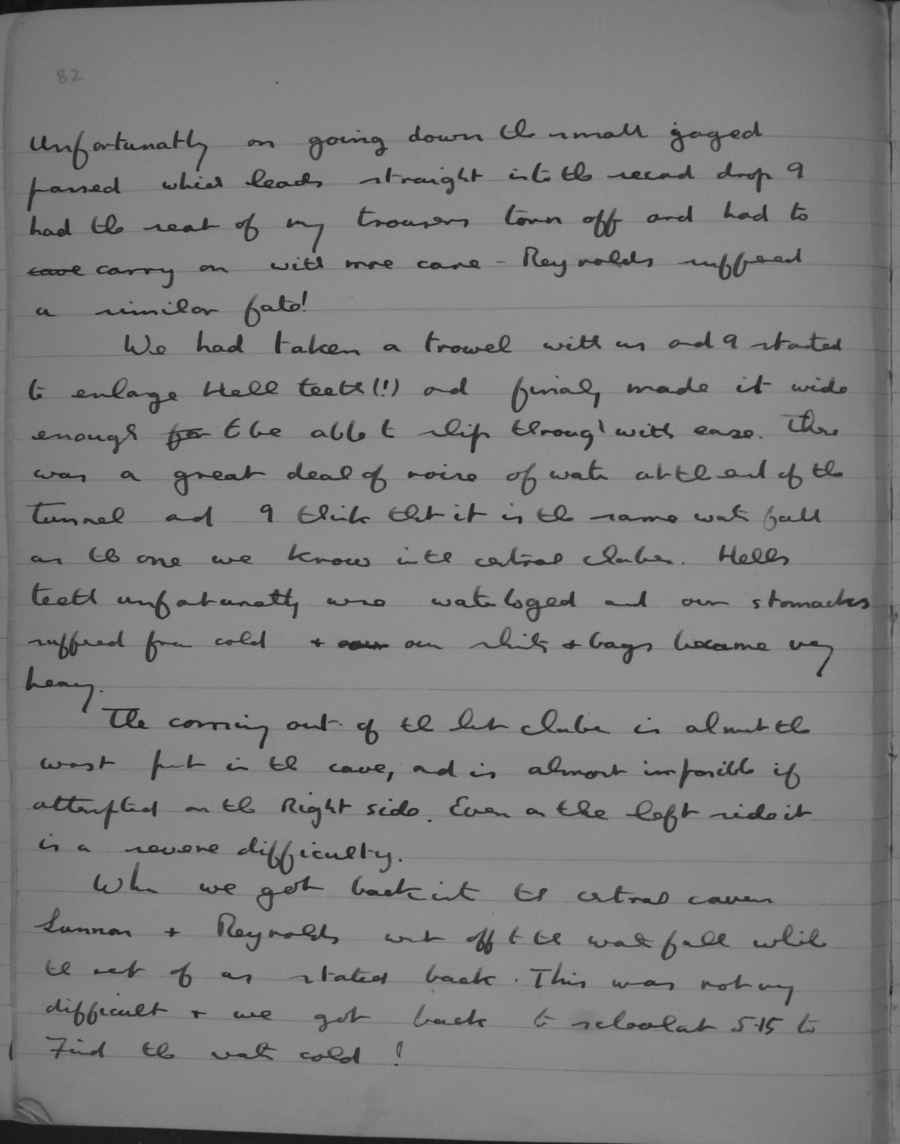 82
Unfortunatly on going down the small jaged
passed which leads straight into the second drop I
had the seat of my trousers torn off and had to
carry on with more care - Reynolds suffered
a similar fate!
We had taken a trowel with us and I started
to enlage Hell teeth (!) and finaly made it wide
enough for to be able to slip through with ease. There
was a great deal of noise of water at the end of the
tunnel and I think that it is the same water fall
as the one we know in the central chamber. Hells
teeth unfortunatly was water loged and our stomaches
suffered from cold + our our shirts + bags became very
heavy.
The coming out of the last chamber is almost the
worst part in the cave, and is almost impossible if
attempted on the Right side. Even on the left side it
is a severe difficulty.
When we got back into the central cavern
+ Reynolds went off to the water fall while
the rest of us started back. This was not very
difficult + we got back to school at 5-15 to
Find the water cold!